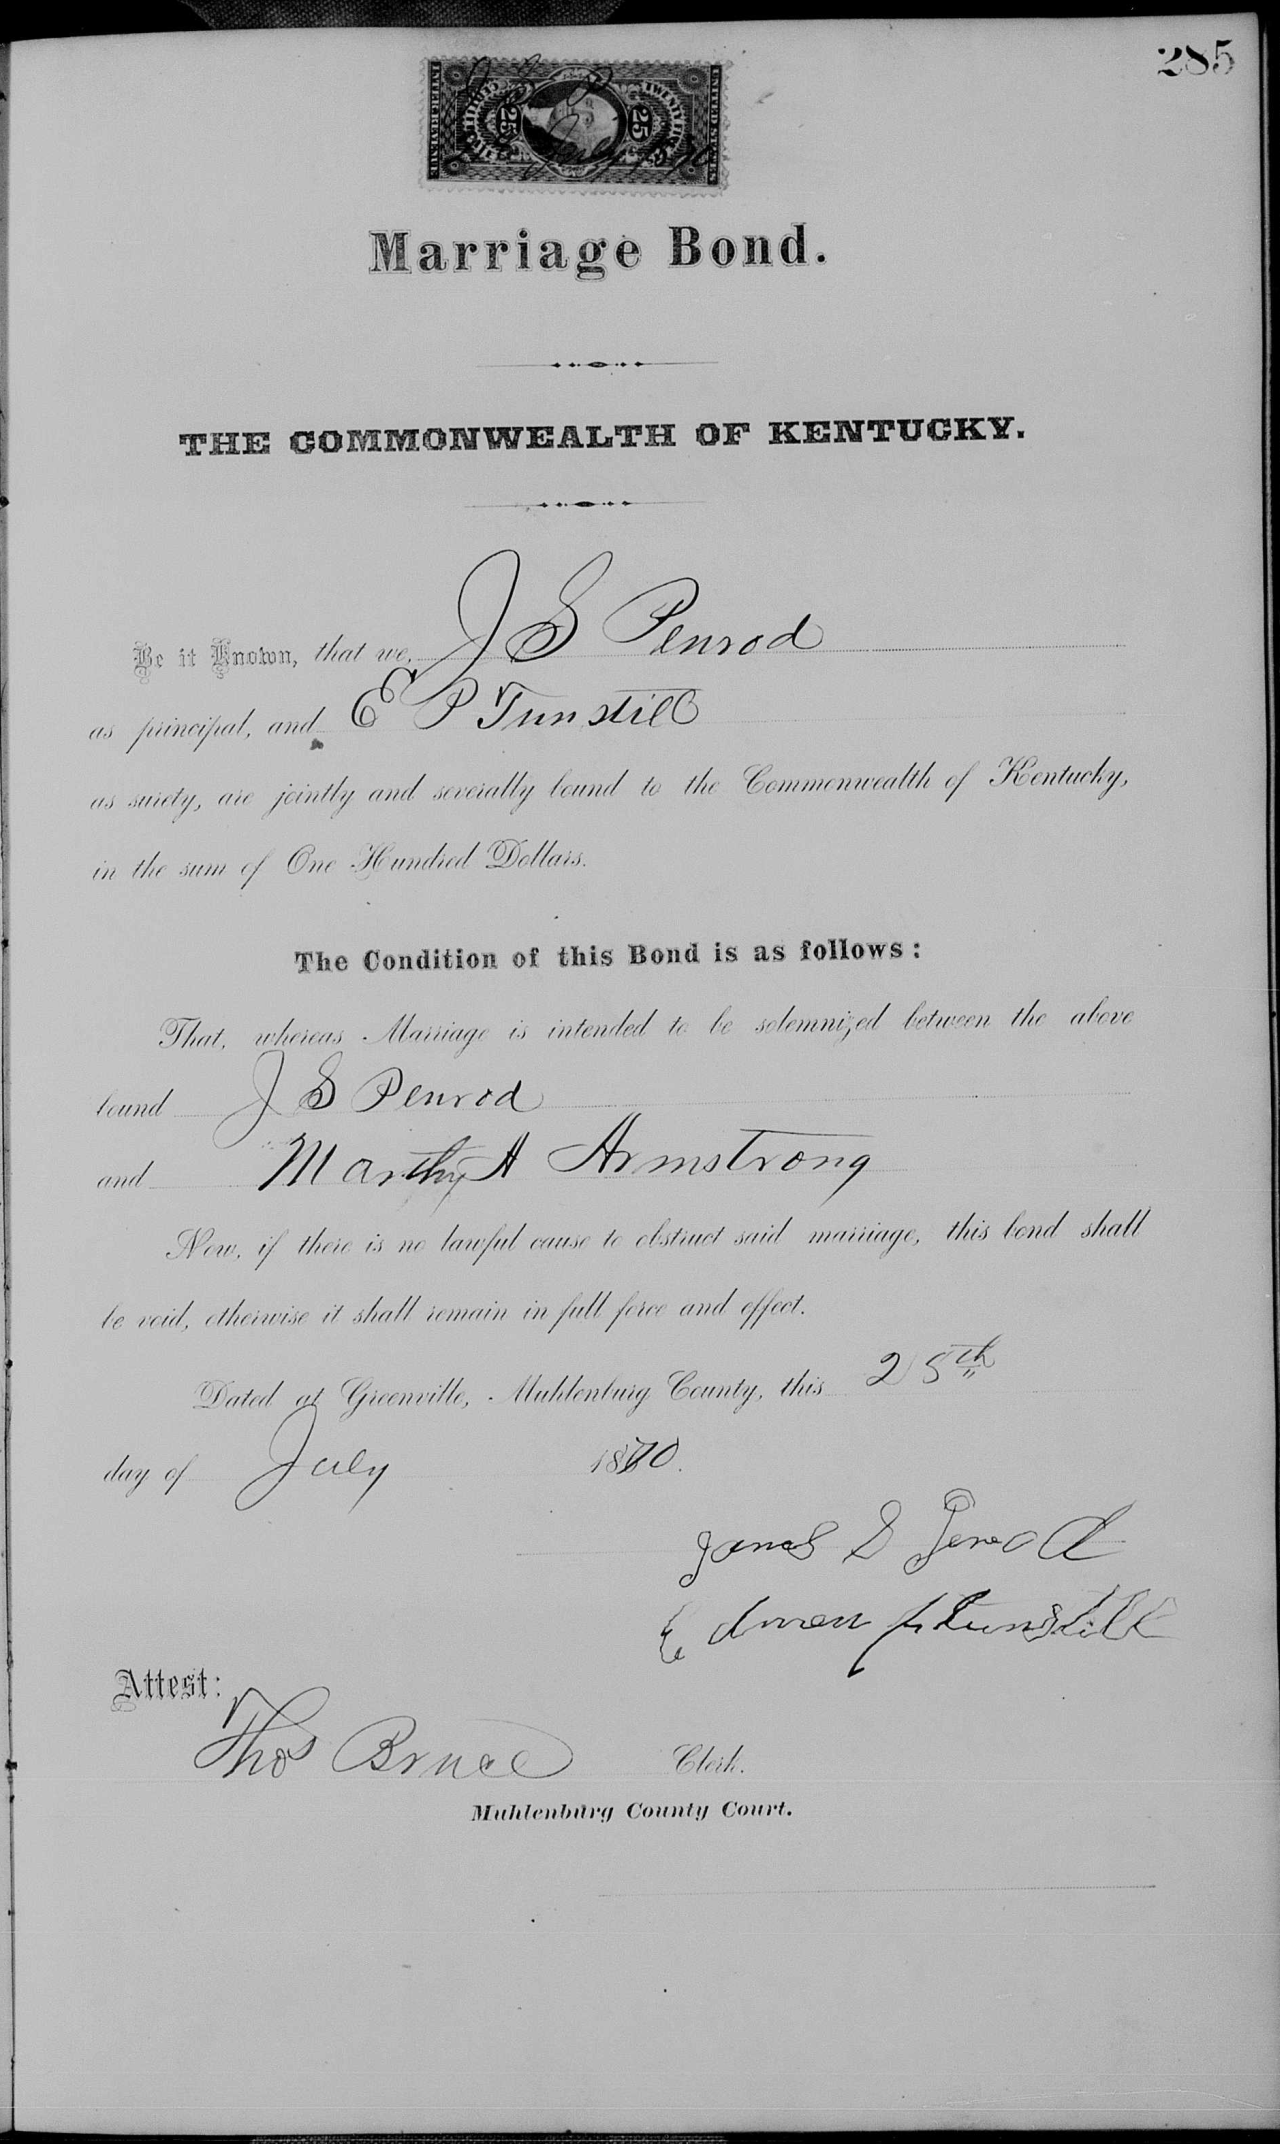 285
UNITED STATES
INTER. REVENUE
TWENTY FIVE
25
25
J S P
July 1870
Marriage Bond.
THE COMMONWEALTH OF KENTUCKY.
Be it Known, that we, J S Penrod
as principal, and E P Tunstill
as surety, are jointly and severally bound to the Commonwealth of Kentucky,
in the sum of One Hundred Dollars.
The Condition of this Bond is as follows:
That, whereas Marriage is intended to be solemnized between the above
bound J S Penrod
and Marthy A Armstrong
Now, if there is no lawful cause to obstruct said marriage, this bond shall
be void, otherwise it shall remain in full force and effect.
Dated at Greenville, Muhlenburg County, this 25th
day of July 1870.
James S Penrod
E P Tunstill
Attest:
Thos Bruce Clerk.
Muhlenburg County Court.